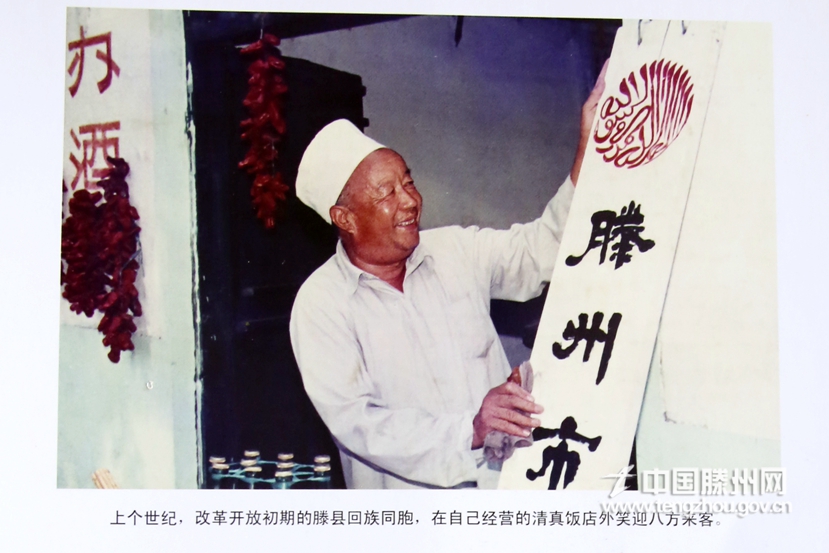 办酒
滕州市
中国滕州网
www.tengzhou.gov.cn
上个世纪，改革开放初期的滕县回族同胞，在自己经营的清真饭店外笑迎八方来客。